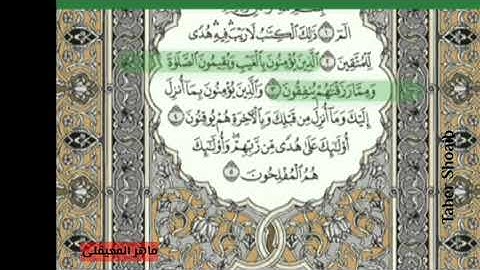 الٓمٓ ۝١ ذَٰلِكَ ٱلْكِتَٰبُ لَا رَيْبَ ۛ فِيهِ ۛ هُدًى
لِّلْمُتَّقِينَ ۝٢ ٱلَّذِينَ يُؤْمِنُونَ بِٱلْغَيْبِ وَيُقِيمُونَ ٱلصَّلَوٰةَ
وَمِمَّا رَزَقْنَٰهُمْ يُنفِقُونَ ۝٣ وَٱلَّذِينَ يُؤْمِنُونَ بِمَآ أُنزِلَ
إِلَيْكَ وَمَآ أُنزِلَ مِن قَبْلِكَ وَبِٱلْءَاخِرَةِ هُمْ يُوقِنُونَ ۝٤
أُو۟لَٰٓئِكَ عَلَىٰ هُدًى مِّن رَّبِّهِمْ ۖ وَأُو۟لَٰٓئِكَ
هُمُ ٱلْمُفْلِحُونَ ۝٥
ماهر المعيقلي
Taher Shoaib